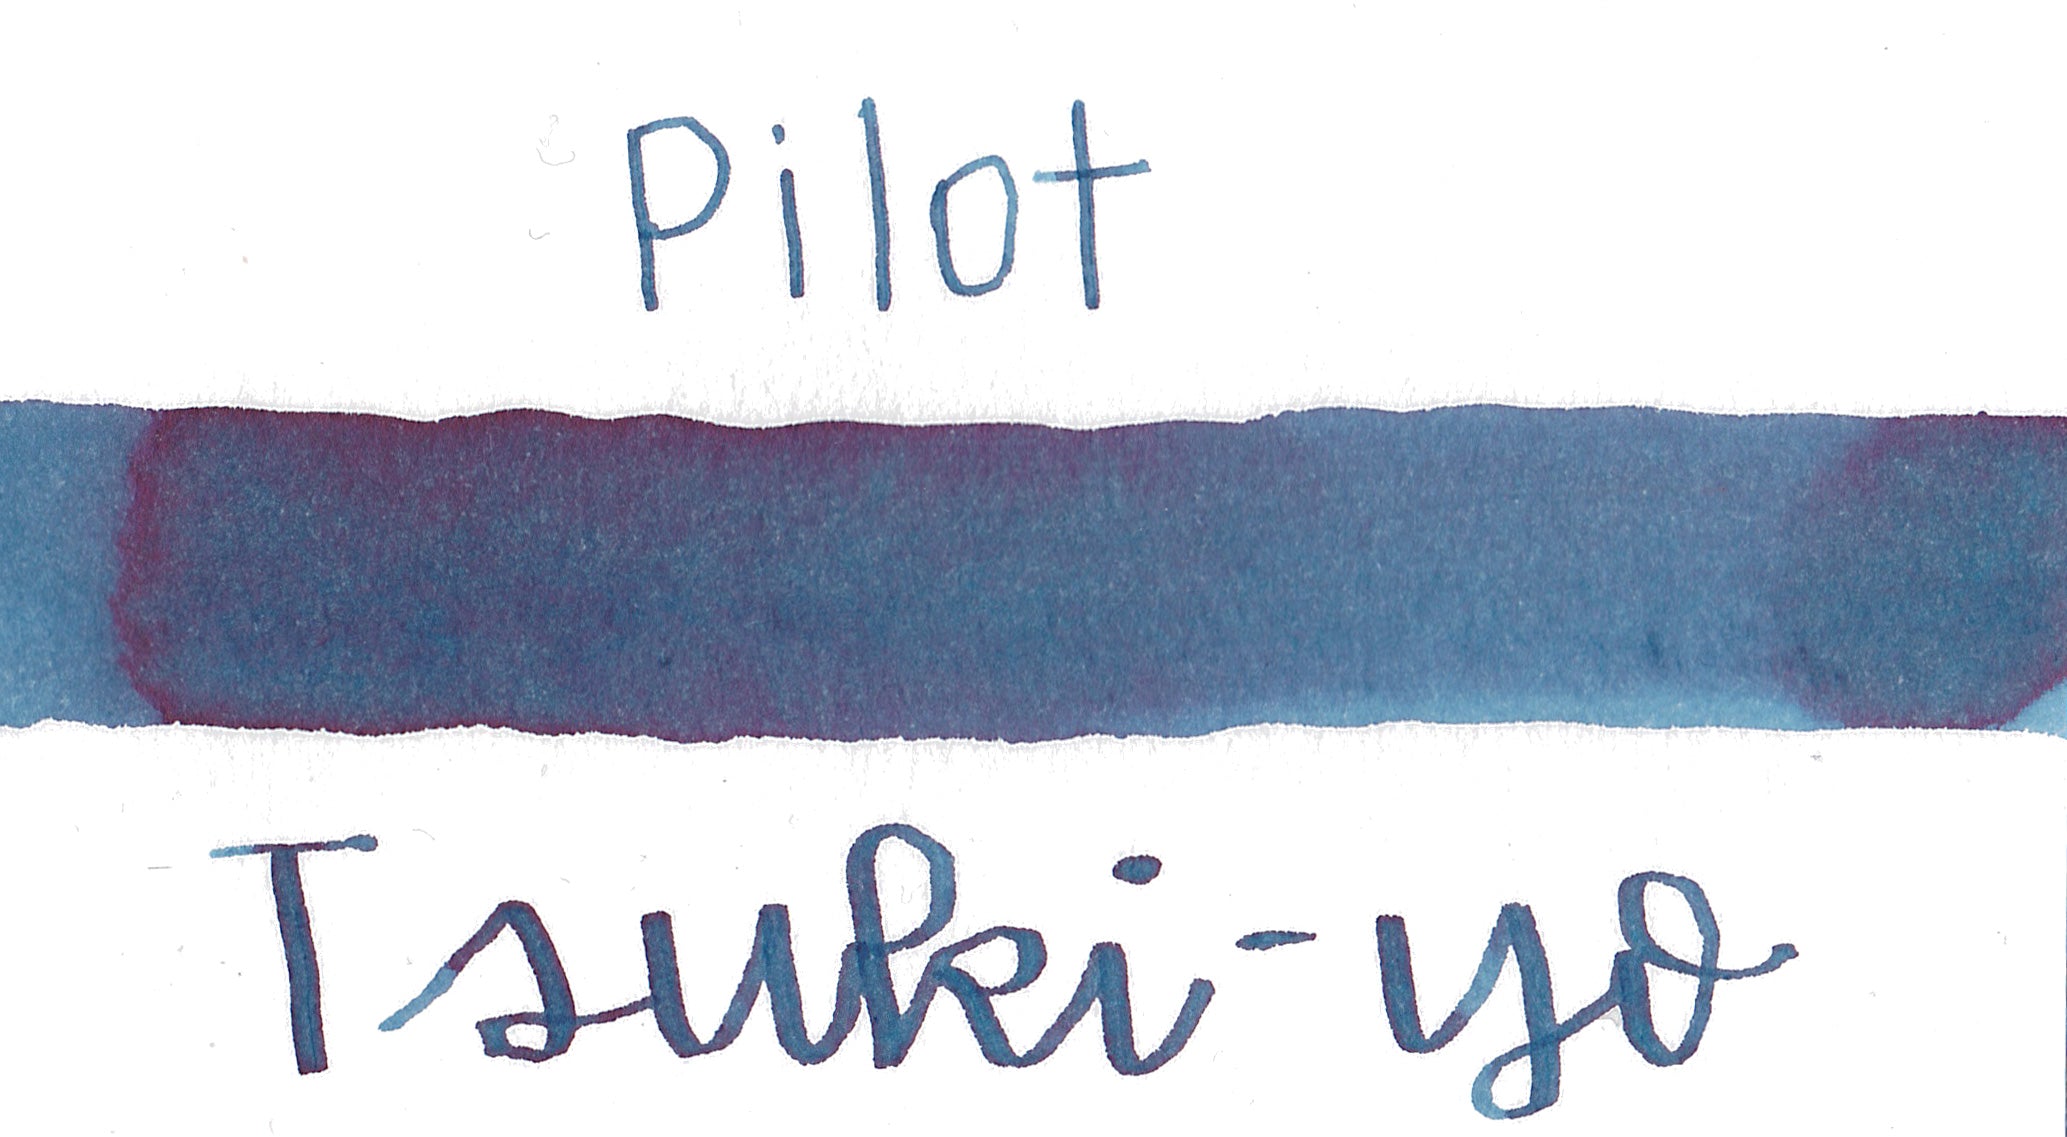 Pilot
Tsuki-yo